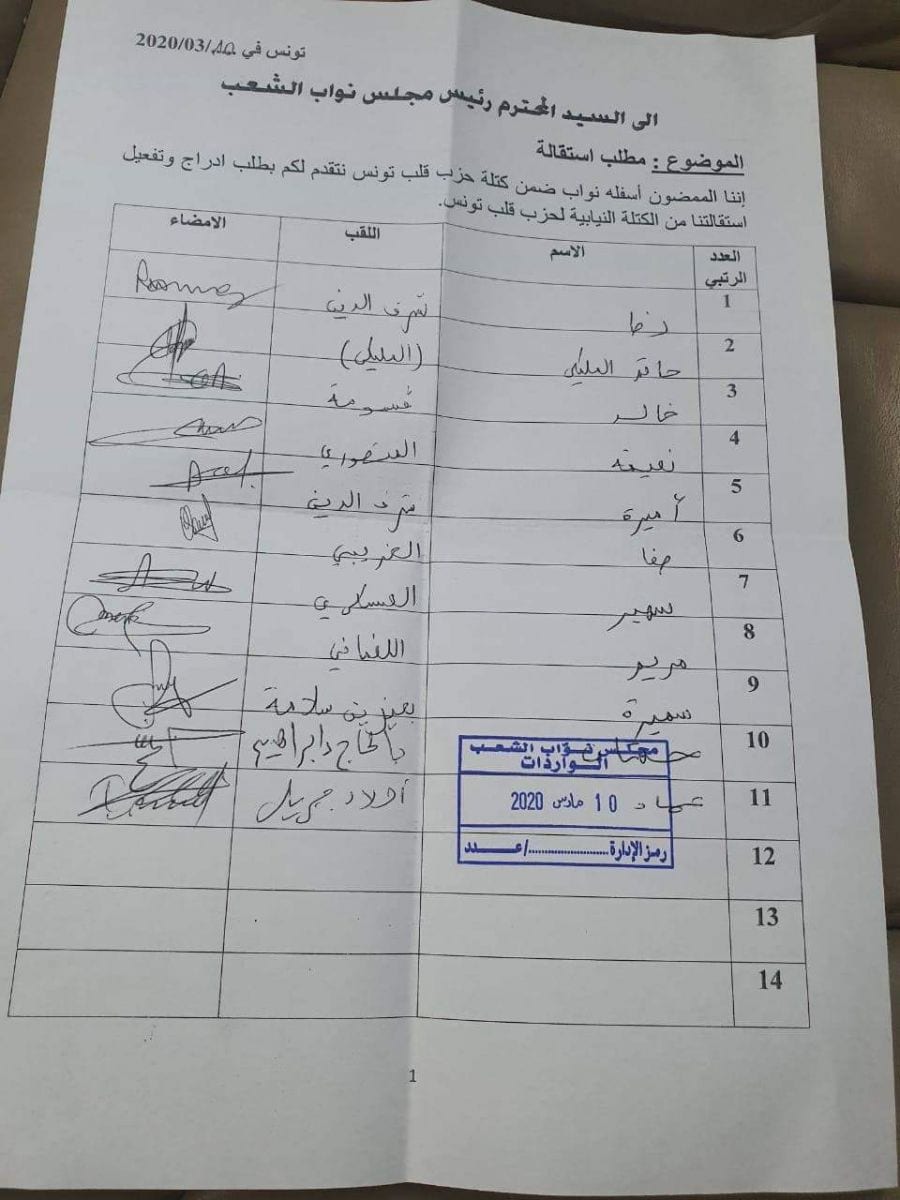 تونس في 2020/03/10
الى السيد المحترم رئيس مجلس نواب الشعب
الموضوع : مطلب استقالة
إننا الممضون أسفله نواب ضمن كتلة حزب قلب تونس نتقدم لكم بطلب ادراج وتفعيل
استقالتنا من الكتلة النيابية لحزب قلب تونس.
العدد الرتبي الاسم اللقب الامضاء
1 رضا شرف الدين
2 حاتم المليكي (المليكي)
3 خالد قسومة
4 نعيمة المنصوري
5 أميرة شرف الدين
6 صفا الغريبي
7 سهير العسكري
8 مريم اللغماني
9 سميرة بعيزيق سلامة
10 بالحاج براهيم
11 عماد أولاد جبريل
12
13
14
مجلس نواب الشعب
الـواردات
10 مارس 2020
رمز الإدارة ..................../عـــدد
1